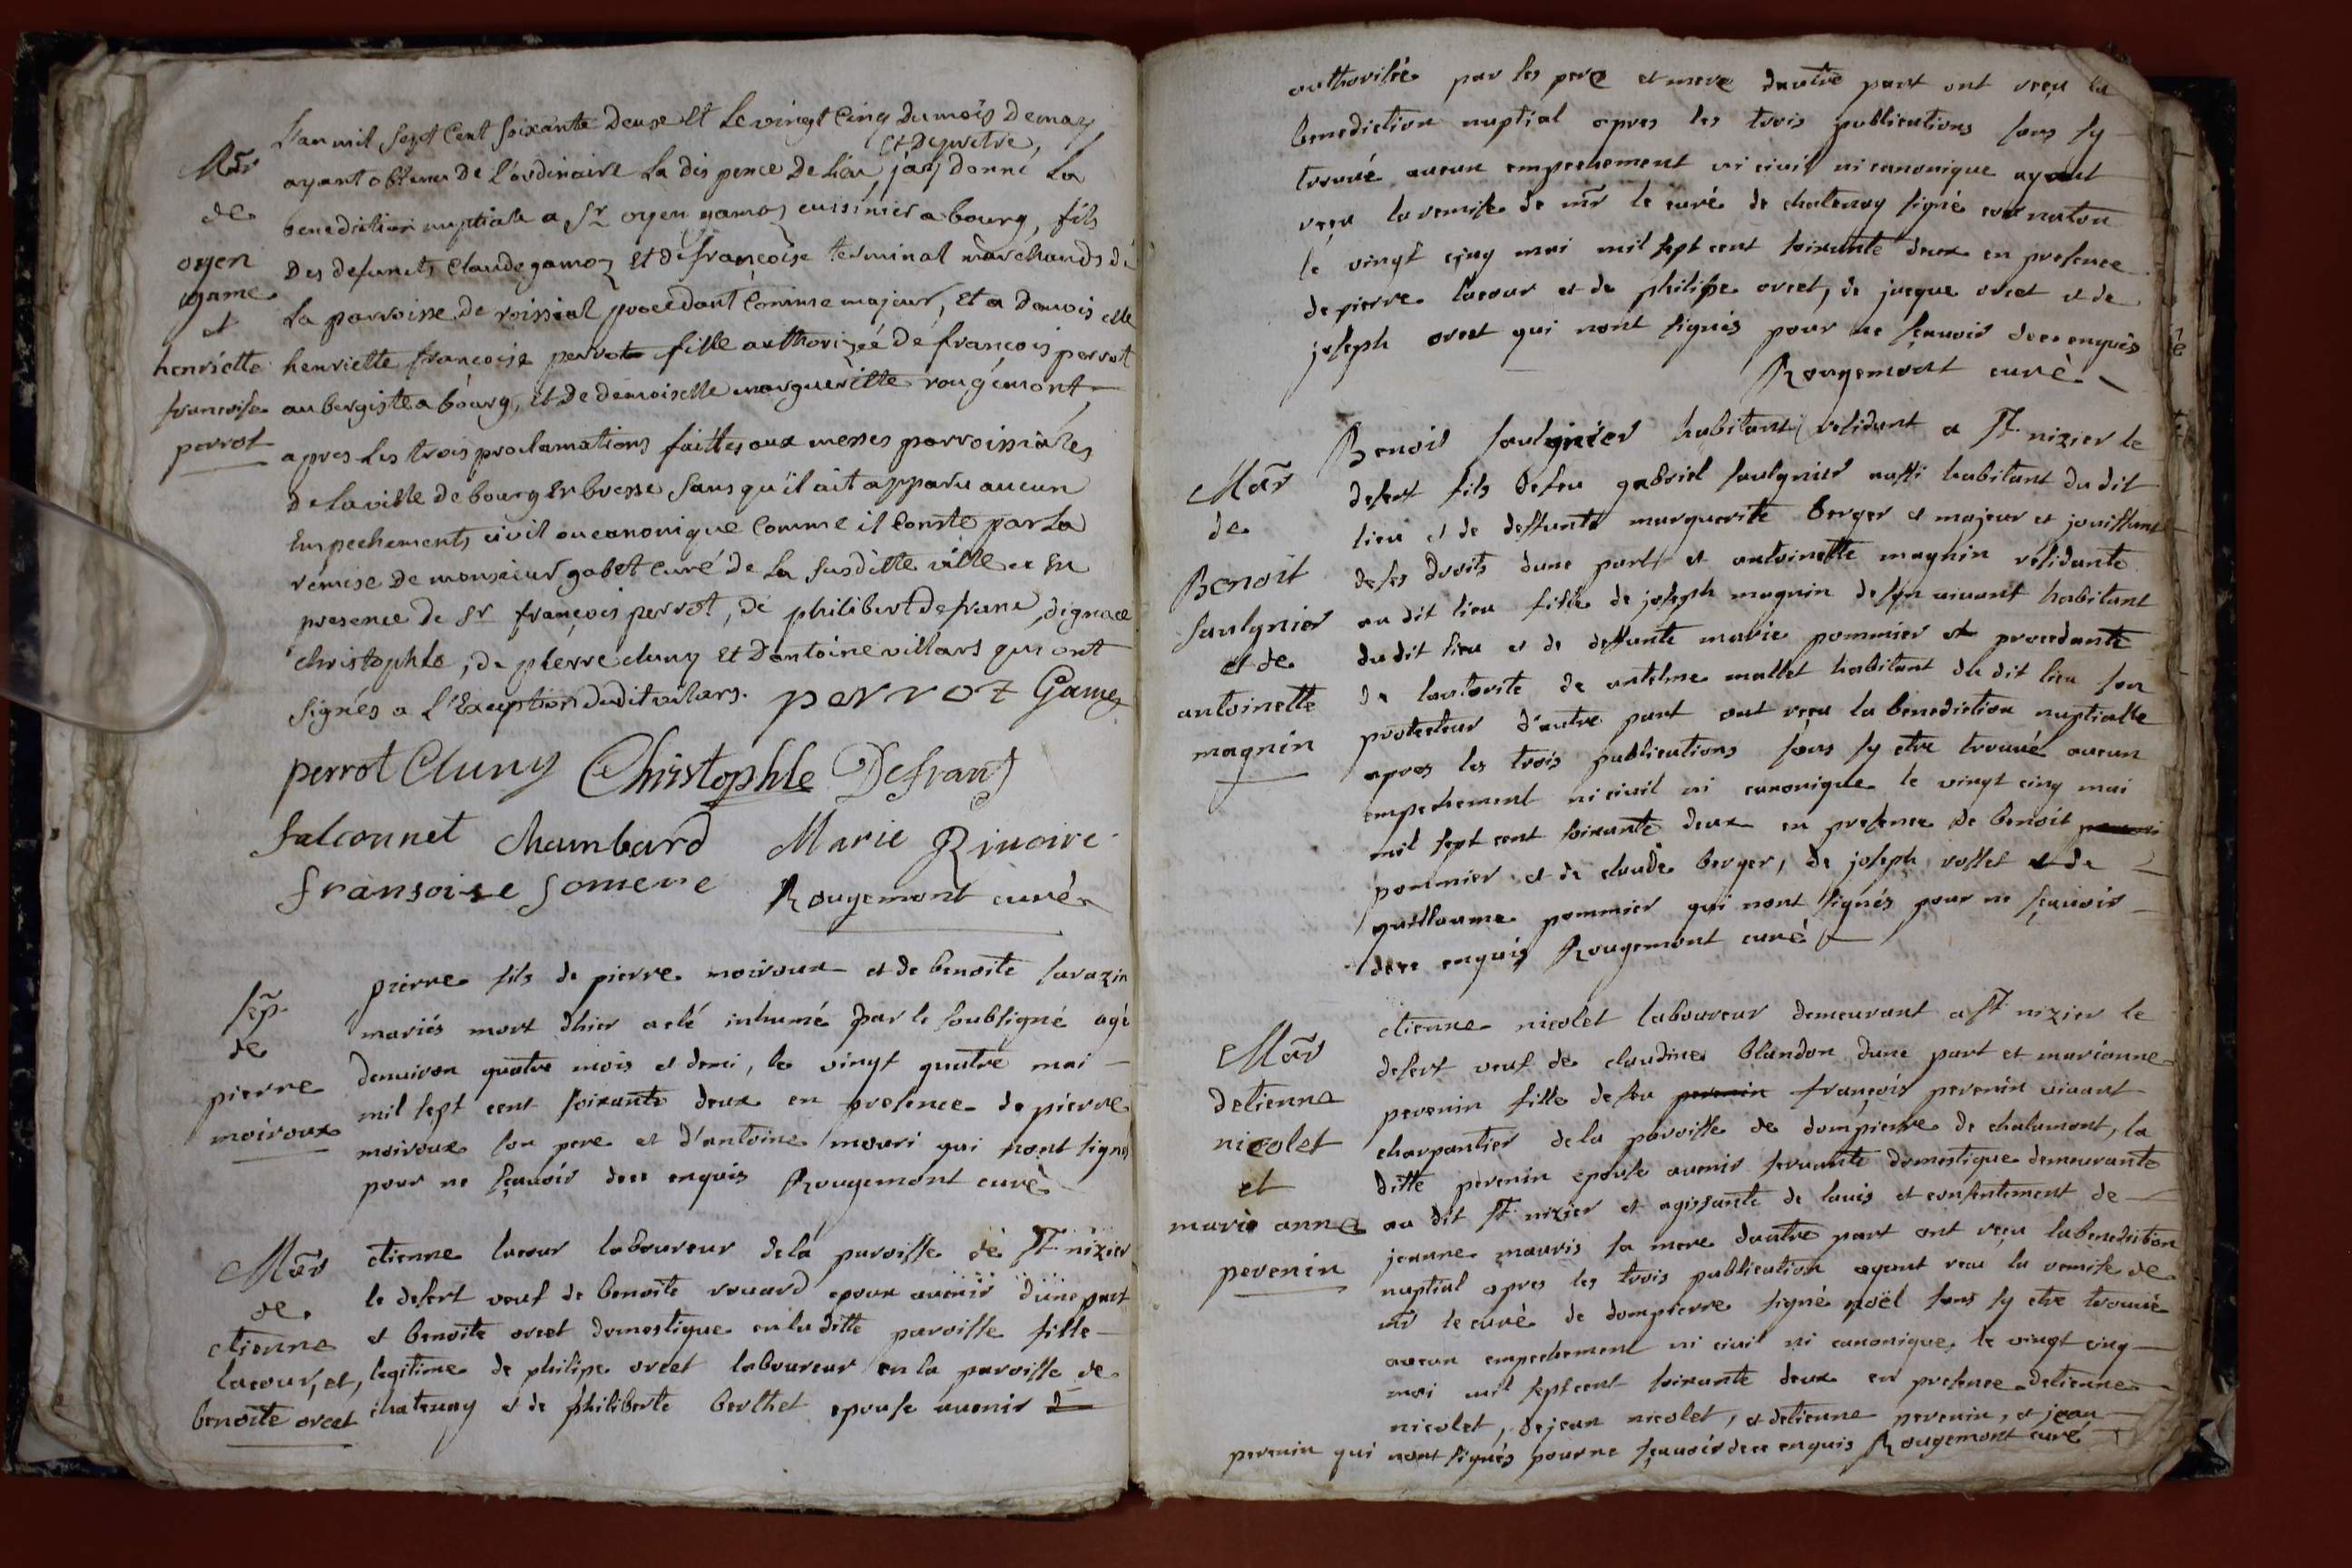 L'an mil sept Cent soixante Deux et Le vingt Cinq du mois de may
et de pretre,
ayant obtenu De L'ordinaire La dispence De lieu, j'ay Donné La
benediction nuptiale a Sr oyen gamoz cuisinier a bourg, fils
Des defuncts Claude gamoz et de françoise terminal marchands de
La parroisse de roissiat procedant Comme majeur, et a Damoiselle
henriette françoise perrot fille authorizée de françois perrot
aubergiste a bourg, et De demoiselle margueritte rougemont,
apres Les trois proclamations faittes aux messes parroissiales
De la ville de bourg en bresse sans qu'il ait apparu aucun
Empechements civil ou canonique Comme il Conste par La
remise De monsieur gabet Curé De La susditte ville en
presence de Sr françois perrot, de philibert defranc, dignace
christophle, de pierre cluny et d'antoine villars qui ont
signés a L'Exception dudit villars. perrot Game
perrot Cluny Christophle Defranc
falconnet chambard Marie Rivoire
fransoise Somere Rougemont curé
Mar
de
oyen
game
et
henriette
francoise
perrot
Sep
de
pierre
moiroux
pierre fils de pierre moiroux et de benoite sarazin
mariés mort dhier a eté inhumé par le soubsigné agé
denviron quatre mois et demi, le vingt quatre mai
mil sept cent soixante deux en presence de pierre
moiroux son pere et d'antoine mouri qui nont signé
pour ne sçavoir de ce enquis Rougemont curé
Mar
de
etienne
lacour, et,
benoite orcet
etienne lacour laboureur dela paroisse de St nizier
le desert veuf de benoite rouard epoux avenir dune part
et benoite orcet domestique en la ditte paroisse fille
legitime de philipe orcet laboureur en la paroisse de
chatenay et de philiberte berthet epouse avenir d
authorisée par les pere et mere dautre part ont reçu la
benediction nuptial apres les trois publications sans sy
trouvé aucun empechement ni civil ni canonique ayant
reçu la remise de mr le curé de chatenay signé cornaton
le vingt cinq mai mil sept cent soixante deux en presence
de pierre lacour et de philippe orcet, de jacque orcet et de
joseph orcet qui nont signés pour ne sçavoir de ce enquis
Rougemont curé
Mar
de
Benoit
saulgnier
et de
antoinette
magnin
Benoit saulgnier habitant residant a St nizier le
desert fils defeu gabriel saulgnier aussi habitant du dit
lieu et de deffunte marguerite berger et majeur et jouissant
de ses droits dune part et antoinette magnin residante
au dit lieu fille de joseph magnin de son vivant habitant
du dit lieu et de deffunte marie pommier et procedante
de lautorite de antelme mallet habitant du dit lieu son
protecteur d'autre part ont reçu la benediction nuptialle
apres les trois publications sans sy etre trouvé aucun
empechement ni civil ni canonique le vingt cinq mai
mil sept cent soixante deux en presence de benoit
pommier et de claude berger, de joseph rosset et de
guillaume pommier qui nont signés pour ne sçavoir
de ce enquis Rougemont curé
Mar
detienne
nicolet
et
marie anne
perenin
etienne nicolet laboureur demeurant a St nizier le
desert veuf de claudine blandon dune part et marianne
perenin fille de feu perenin françois perenin vivant
charpantier de la paroisse de dompierre de chalamont, la
ditte perenin epouse avenir servante domestique demeurante
au dit St nizier et agissante de lavis et consentement de
jeanne mauris sa mere dautre part ont reçu la benediction
nuptial apres les trois publication ayant recu la remise de
mr le curé de dompierre signé noël sans sy etre trouvé
aucun empechement ni civil ni canonique, le vingt cinq
mai mil sept cent soixante deux en presence detienne
nicolet, de jean nicolet, et detienne perenin, et jean
perenin qui nont signés pour ne sçavoir de ce enquis Rougemont curé